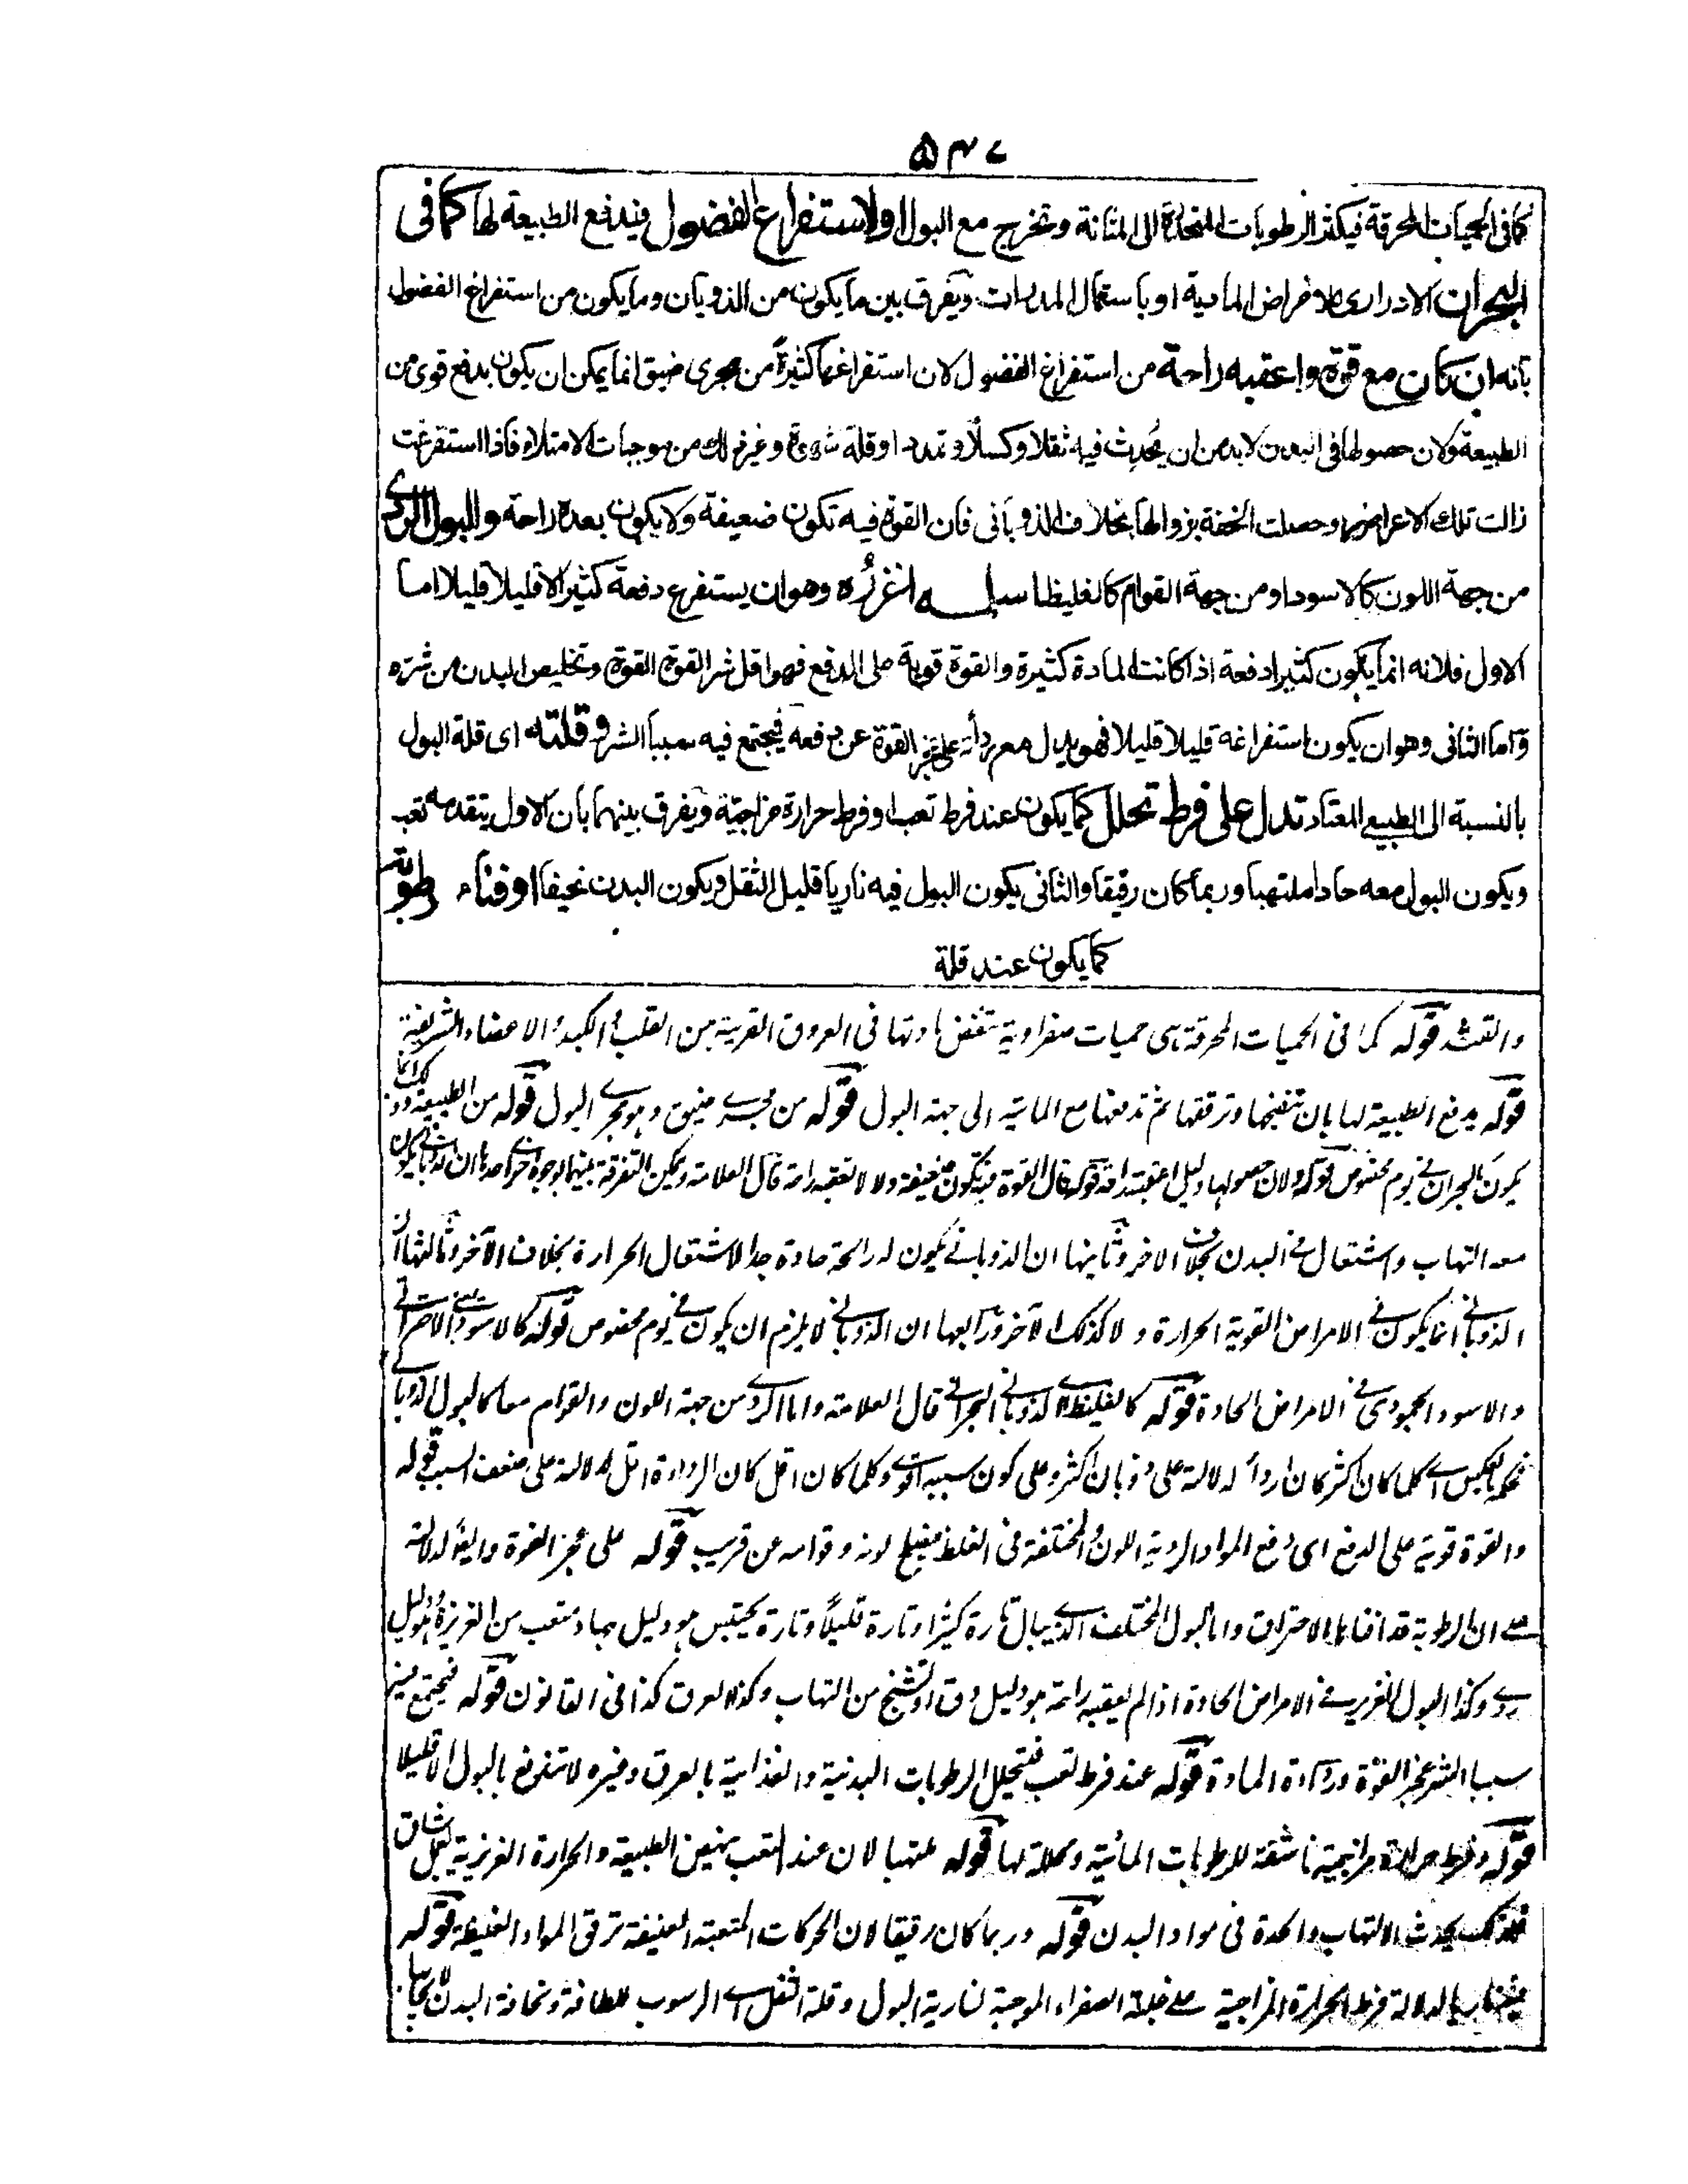 ۵۴۷
كما فى الحميات المحرقة فيكثر الرطوبات المنجذبة الى المثانة وتخرج مع البول اولاستفراغ الفضول فيندفع الطبيعة لها كما فى
البحران الادرارى للامراض المادية او باستعمال المدرات ويفرق بين ما يكون من الذوبان وما يكون من استفراغ الفضول
بانه ان كان مع قوة واعقبه راحة من استفراغ الفضول لان استفراغها كثيرة من مجرى ضيق انما يمكن ان يكون بدفع قوى من
الطبيعة ولان حصولها فى البدن لابد من ان يحدث فيه ثقلا وكسلا وتمددا وقلة شهوة وغير ذلك من موجبات الامتلاء فاذا استفرغت
زالت تلك الاعراض وحصلت الخفة بزوالها بخلاف الذوبانى فان القوة فيه تكون ضعيفة ولا يكون بعده راحة والبول الردى
من جهة اللون كالاسود او من جهة القوام كالغليظ اسلمه اغزره وهو ان يستفرغ دفعة كثيرا لا قليلا قليلا اما
الاول فلانه انما يكون كثيرا دفعة اذا كانت المادة كثيرة والقوة قوية على الدفع فهو اقل شر القوة القوة وتخليص البدن من شره
واما الثانى وهو ان يكون استفراغه قليلا قليلا فهو يدل مع رداءته على عجز القوة عن دفعه فيجتمع فيه سببا الشر وقلته اى قلة البول
بالنسبة الى الطبيعى المعتاد تدل على فرط تحلل كما يكون عند فرط تعب او فرط حرارة مزاجية ويفرق بينهما بان الاول يتقدمه تعب
ويكون البول معه حادا ملتهبا وربما كان رقيقا والثانى يكون البول فيه ناريا قليل الثقل ويكون البدن نحيفا او فناء رطوبة
كما يكون عند قلة
قوله كما فى الحميات المحرقة هى حميات صفراوية تتعفن مادتها فى العروق القريبة من القلب او الكبد او الاعضاء الشريفة
قوله يدفع الطبيعة لها بان تنضجها وترققها ثم تدفعها مع المائية الى جهة البول قوله من مجرى ضيق وهو مجرى البول قوله من الطبيعة
يكون البحران فى يوم مخصوص قوله ولان حصولها دليل اعقبته راحة قوله فان القوة فيه تكون ضعيفة ولا تعقبه راحة قال العلامة ويمكن التفرقة بينهما بوجوه اخر احدها ان الذوبانى يكون
معه التهاب واشتعال فى البدن بخلاف الاخر وثانيها ان الذوبانى يكون له رائحة حادة جدا لاشتعال الحرارة بخلاف الآخر وثالثها ان
الذوبانى انما يكون فى الامراض القوية الحرارة ولا كذلك الآخر ورابعها ان الذوبانى لا يلزم ان يكون فى يوم مخصوص قوله كالاسود الاحتراقى
والاسود الجمودى فى الامراض الحادة قوله كالغليظ الذوبانى البحرانى قال العلامة واما الردى من جهة اللون والقوام معا كالبول الذوبانى
بالعكس اى كلما كان اكثر كان اردأ لدلالته على ذوبان اكثر وعلى كون سببه اقوى وكلما كان اقل كان الرداءة اقل لدلالته على ضعف السبب قوله
والقوة قوية على الدفع اى دفع المواد الردية اللون المختلفة فى الغلظ فيصلح لونه وقوامه عن قريب قوله على عجز القوة وايضا لدلالته
على ان الرطوبة قد افناها الاحتراق واما البول المختلف الذى يبال تارة كثيرا وتارة قليلا وتارة يحتبس هو دليل جهاد متعب من الغريزة وهو دليل
ردى وكذا البول الغزير فى الامراض الحادة اذا لم يعقبه راحة هو دليل دق او تشنج من التهاب وكذا العرق كذا فى القانون قوله فيجتمع فيه
سببا الشر عجز القوة ورداءة المادة قوله عند فرط تعب فتتحلل الرطوبات البدنية والغذائية بالعرق وغيره لا تستفرغ بالبول الا قليلا
قوله وفرط حرارة مزاجية ناشفة للرطوبات المائية ومحللة لها قوله ملتهبا لان عند التعب ينهض الطبيعة والحرارة الغريزية
فلذلك يحدث الالتهاب والحدة فى مواد البدن قوله وربما كان رقيقا لان الحركات المتعبة العنيفة ترقق المواد الغليظة قوله
لدلالة فرط الحرارة المزاجية على غلبة الصفراء الموجبة لنارية البول وقلة الثفل اى الرسوب للطافة ونحافة البدن